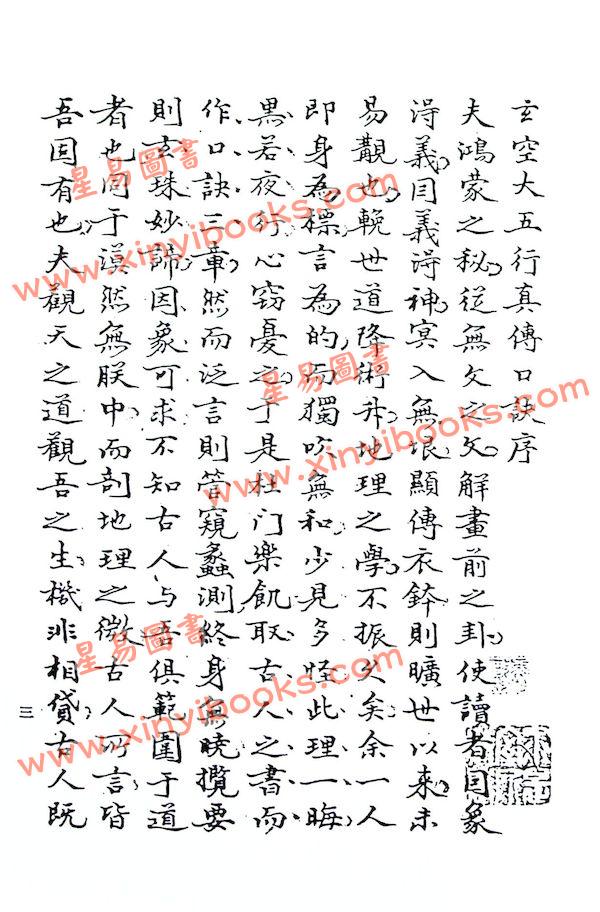 玄空大五行真傳口訣序
夫鴻蒙之秘從無文之文解畫前之卦使讀者因象
淂義因義淂神冥入無垠顯傳衣鉢則曠世以來未
易覯也輓世道降術升地理之學不振久矣余一人
即身為標言為的而獨吹無和少見多怪此理一晦
黑若夜行心竊憂之于是杜门樂飢取古人之書而
作口訣三章然而泛言則管窺蠡測終身無曉攬要
則玄珠妙諦因象可求不知古人与吾俱範圍于道
者也同于漠然無朕中而剖地理之微古人所言皆
吾固有也夫觀天之道觀吾之生機非相貸古人既
三
星易圖書
www.xinyibooks.com
星易圖書
www.xinyibooks.com
星易圖書
www.xinyibooks.com